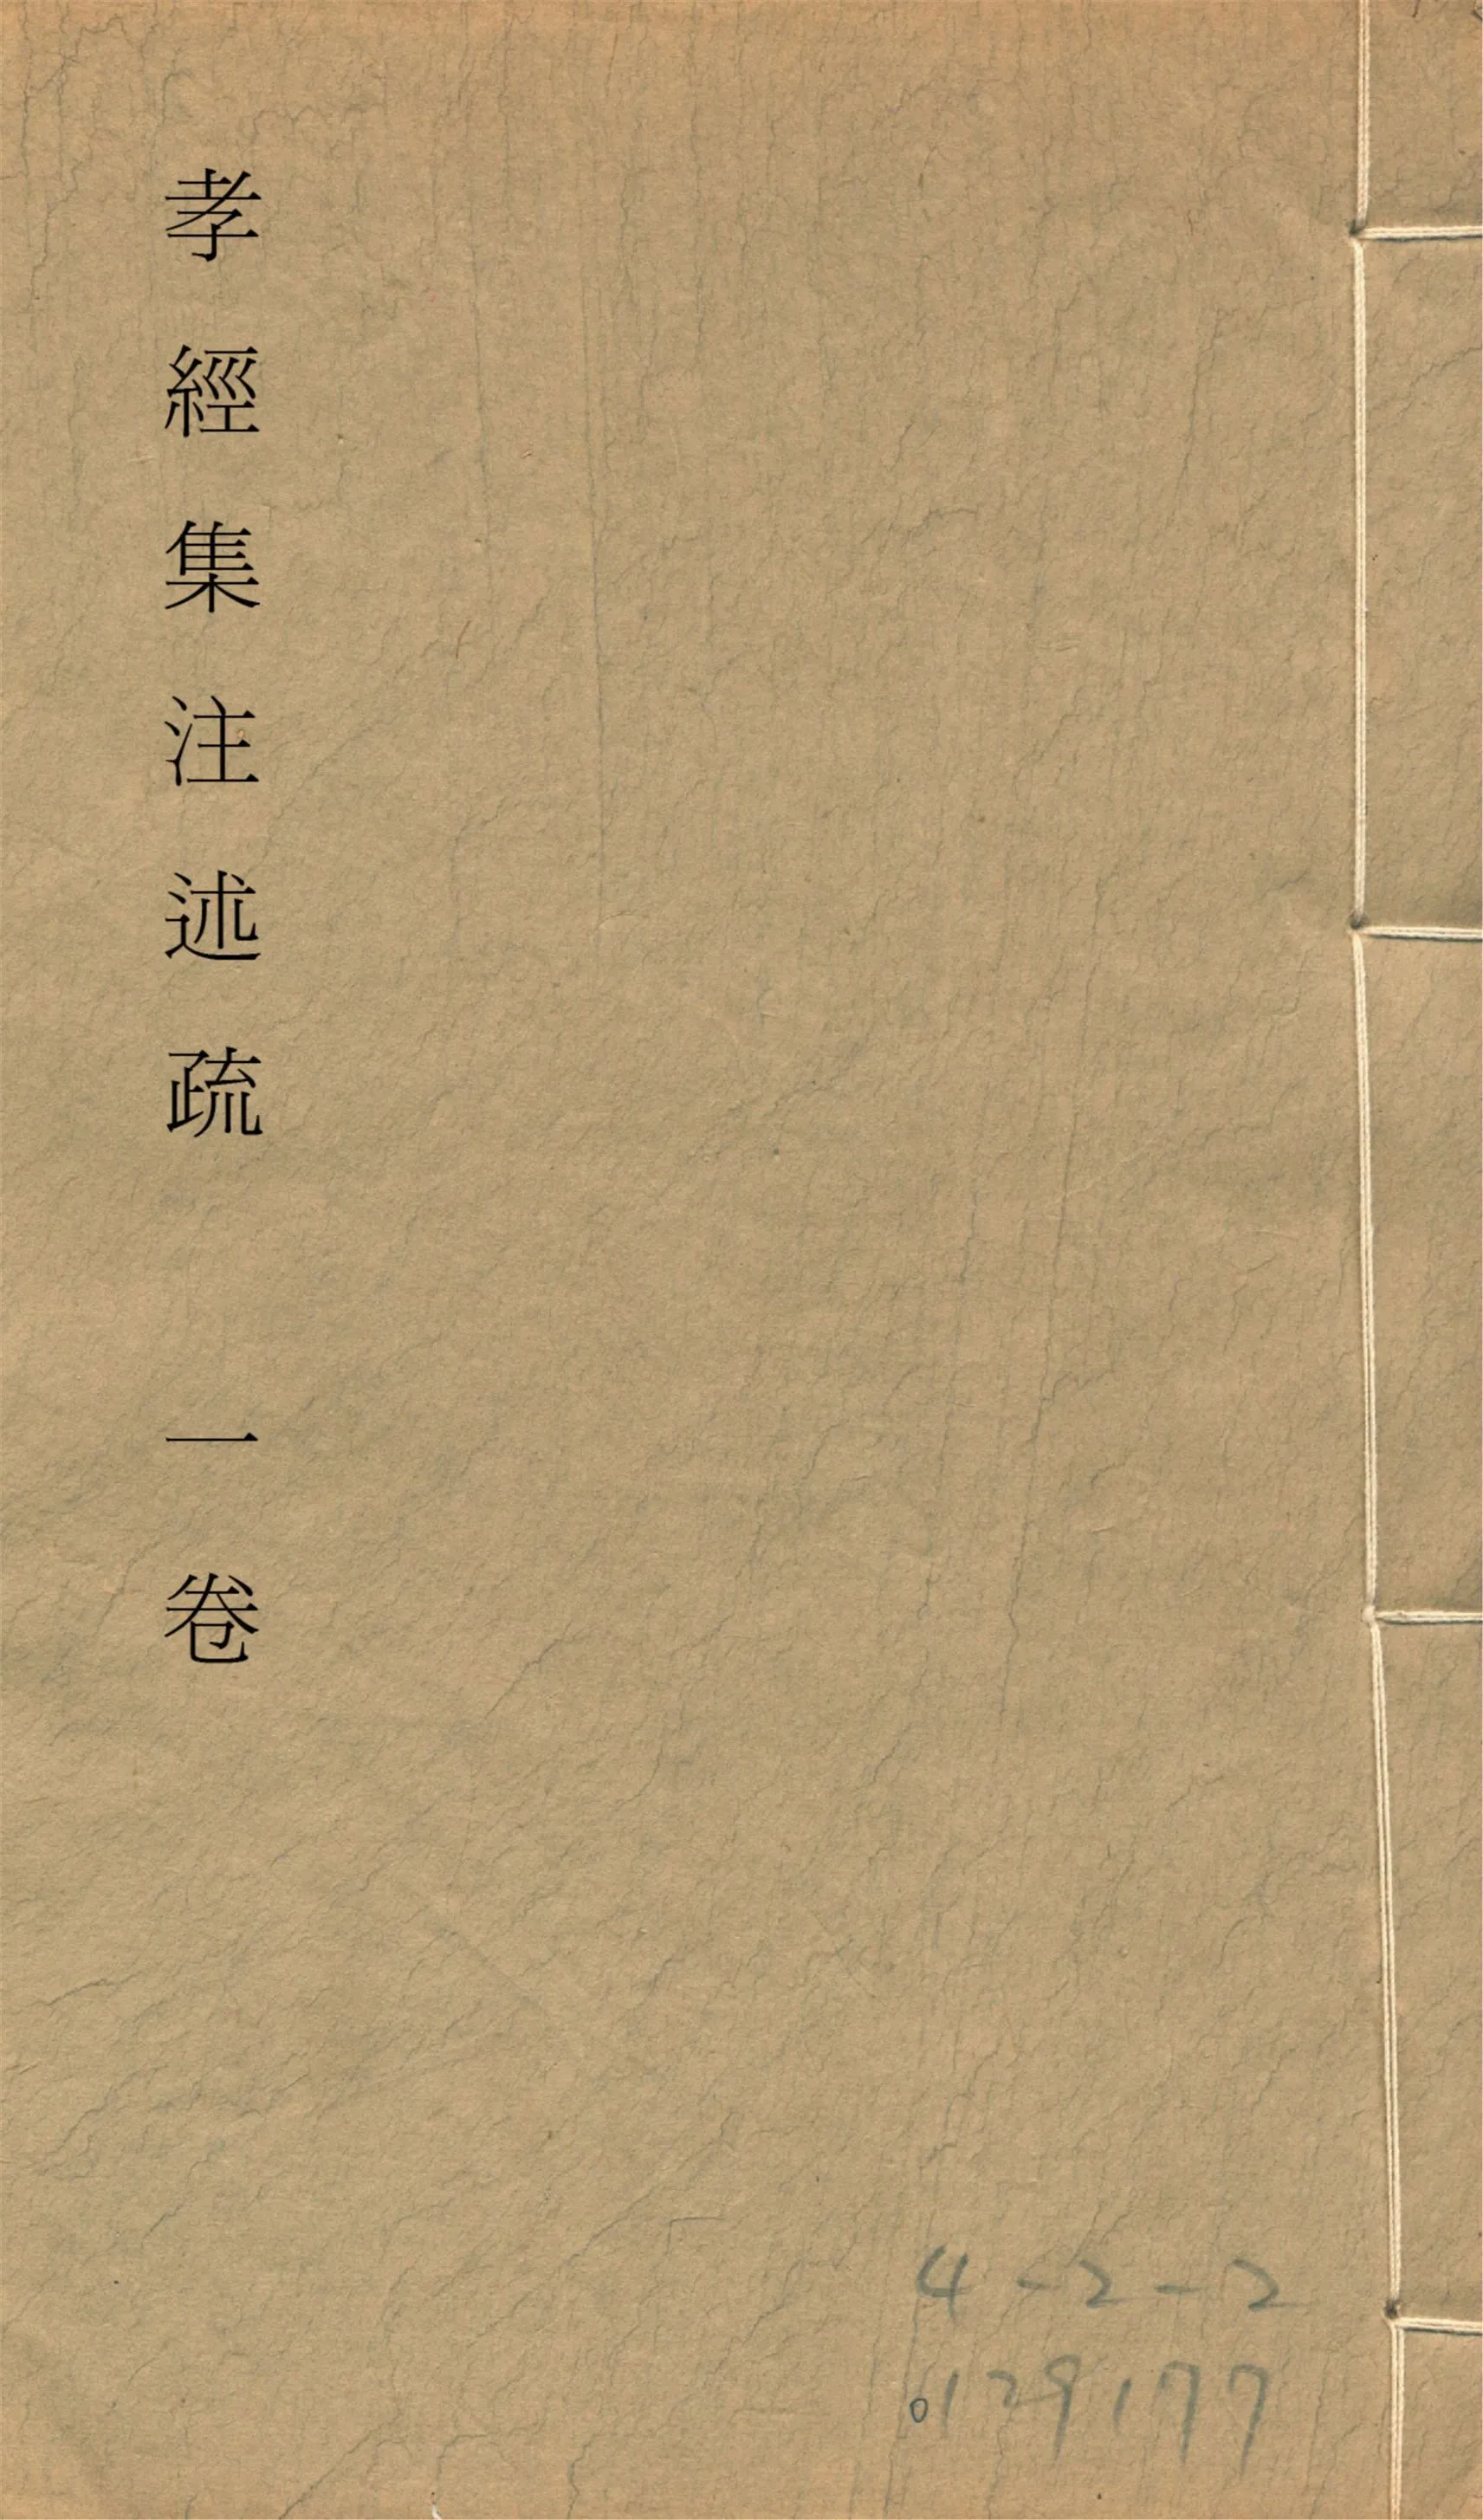 孝經集注述疏 一卷
4-2-2
0129177